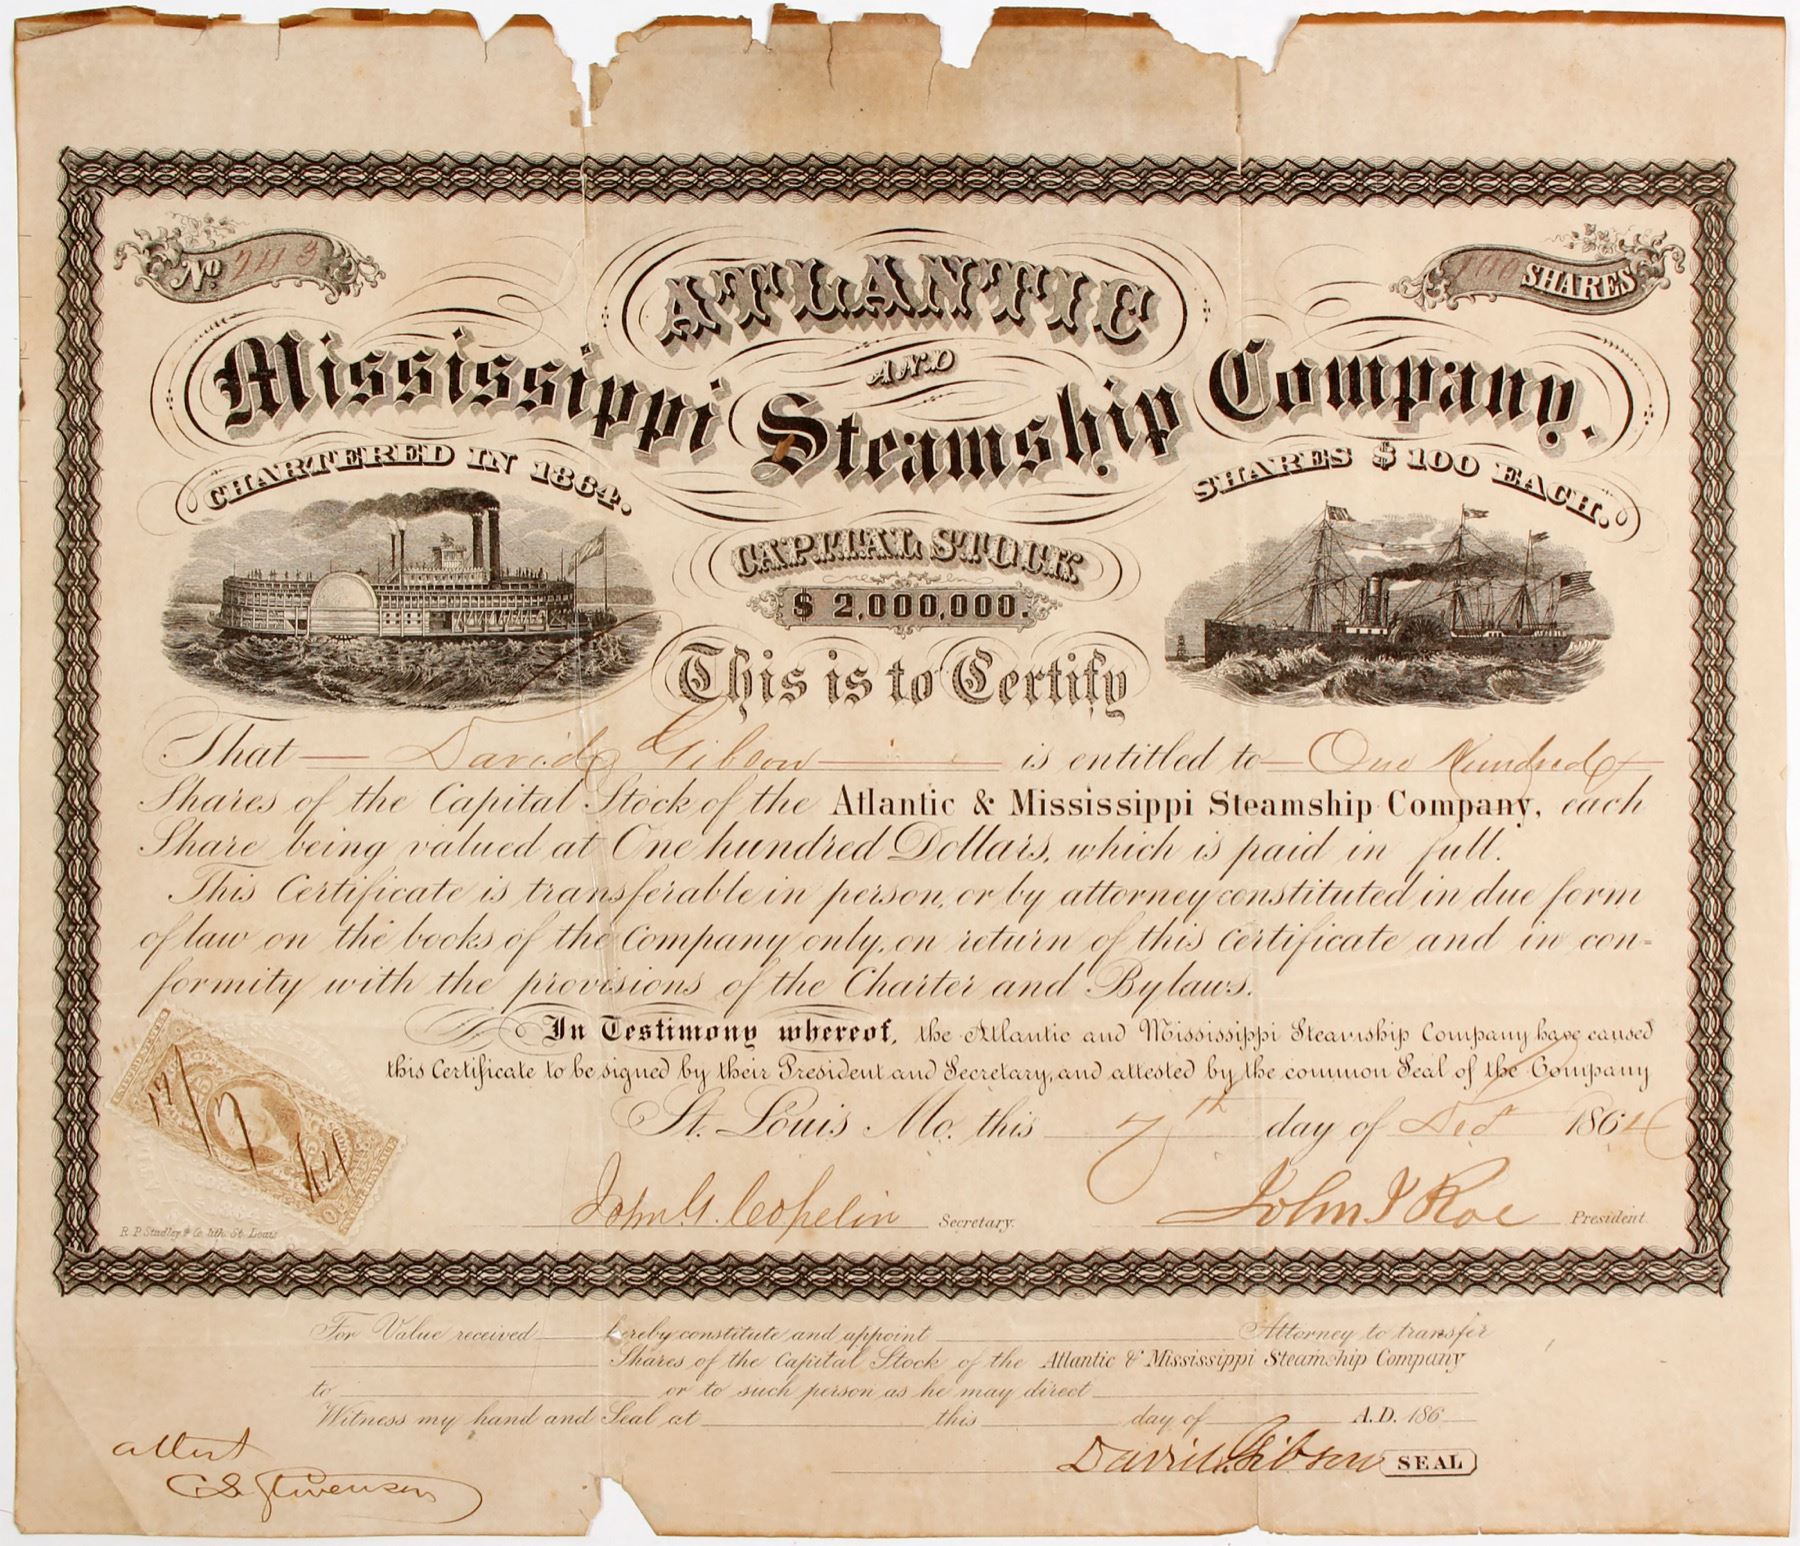 No 243
100 SHARES
ATLANTIC
AND
Mississippi Steamship Company.
CHARTERED IN 1864.
SHARES $100 EACH.
CAPITAL STOCK
$ 2,000,000.
This is to Certify
That David Gibson is entitled to One Hundred
Shares of the Capital Stock of the Atlantic & Mississippi Steamship Company, each
Share being valued at One hundred Dollars, which is paid in full.
This Certificate is transferable in person, or by attorney constituted in due form
of law on the books of the Company only, on return of this Certificate and in con=
formity with the provisions of the Charter and Bylaws.
In Testimony whereof, the Atlantic and Mississippi Steamship Company have caused
this Certificate to be signed by their President and Secretary, and attested by the common Seal of the Company
St. Louis Mo. this 7th day of Dec 1864
John G. Copelin Secretary.
John J Roe President
R. P. Studley & Co. lith. St. Louis
For Value received hereby constitute and appoint Attorney to transfer
Shares of the Capital Stock of the Atlantic & Mississippi Steamship Company
to or to such person as he may direct
Witness my hand and Seal at this day of A.D. 186
David Gibson SEAL
attest
C S Stevenson